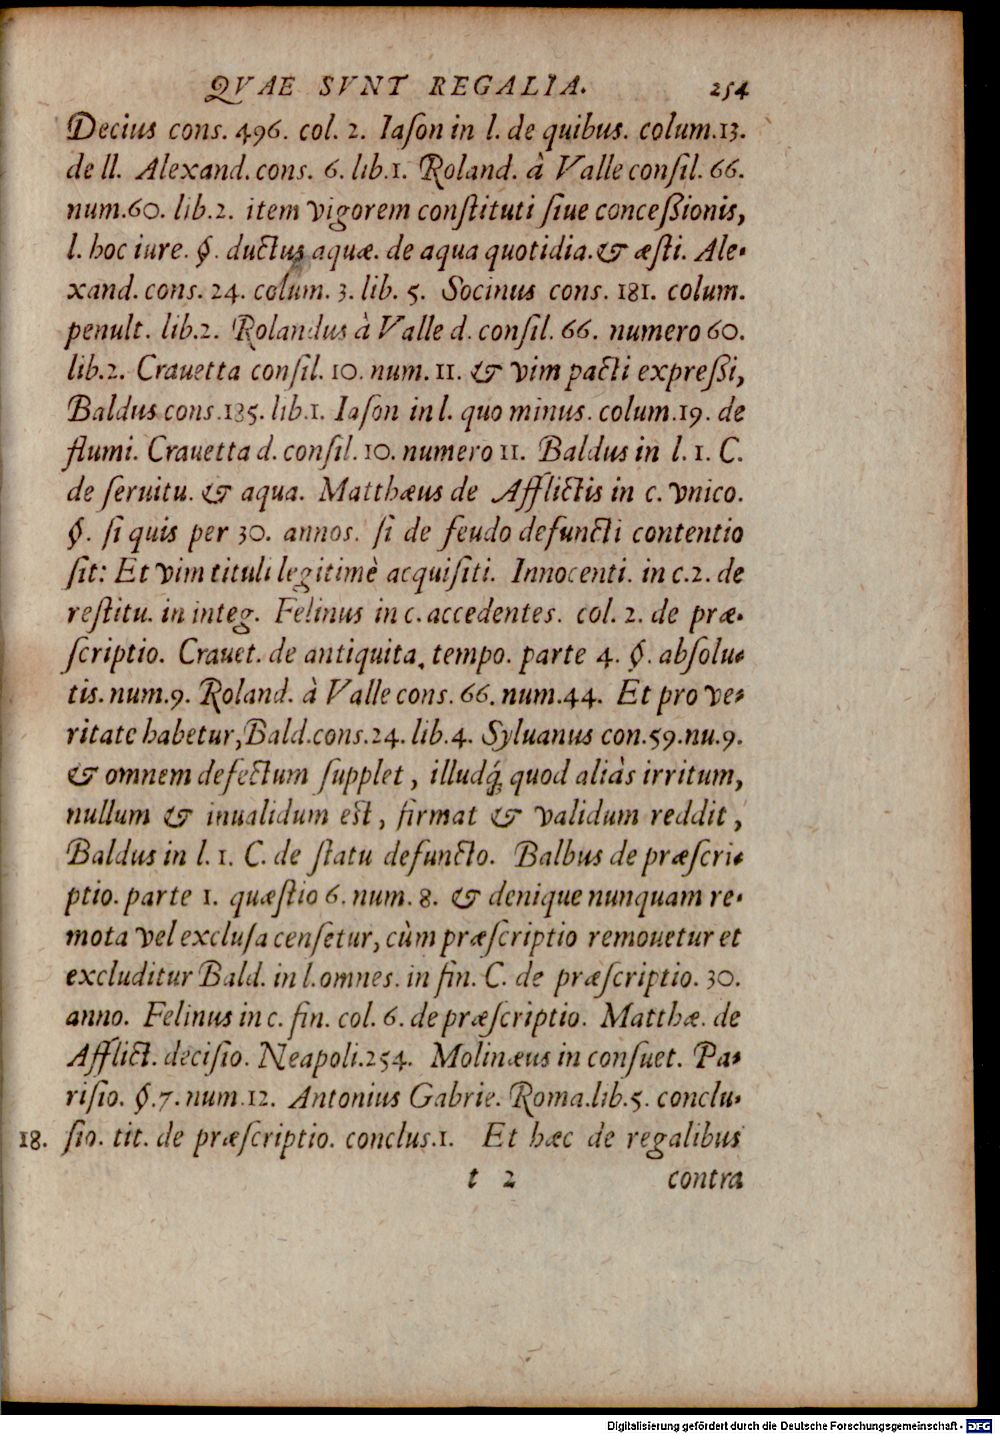 QVAE SVNT REGALIA. 254
Decius cons. 496. col. 2. Iaſon in l. de quibus. colum.13.
de ll. Alexand. cons. 6. lib.1. Roland. à Valle conſil. 66.
num.60. lib.2. item vigorem conſtituti ſiue conceßionis,
l. hoc iure. §. ductus aquæ. de aqua quotidia. & æſti. Ale-
xand. cons. 24. colum. 3. lib. 5. Socinus cons. 181. colum.
penult. lib.2. Rolandus à Valle d. conſil. 66. numero 60.
lib.2. Crauetta conſil. 10. num. 11. & vim pacti expreßi,
Baldus cons.185. lib.1. Iaſon in l. quo minus. colum.19. de
flumi. Crauetta d. conſil. 10. numero 11. Baldus in l. 1. C.
de ſeruitu. & aqua. Matthæus de Afflictis in c. vnico.
§. ſi quis per 30. annos. ſi de feudo defuncti contentio
ſit: Et vim tituli legitimè acquiſiti. Innocenti. in c.2. de
reſtitu. in integ. Felinus in c. accedentes. col. 2. de præ-
ſcriptio. Crauet. de antiquita. tempo. parte 4. §. abſolu-
tis. num.9. Roland. à Valle cons. 66. num.44. Et pro ve-
ritate habetur, Bald.cons.24. lib.4. Syluanus con.59.nu.9.
& omnem defectum ſupplet, illudq́; quod aliàs irritum,
nullum & inualidum est, firmat & validum reddit,
Baldus in l. 1. C. de ſtatu defuncto. Balbus de præſcri-
ptio. parte 1. quæſtio 6. num. 8. & denique nunquam re-
mota vel excluſa cenſetur, cùm præſcriptio remouetur et
excluditur Bald. in l. omnes. in fin. C. de præſcriptio. 30.
anno. Felinus in c. fin. col. 6. de præſcriptio. Matthæ. de
Afflict. deciſio. Neapoli.254. Molinæus in conſuet. Pa-
riſio. §.7. num.12. Antonius Gabrie. Roma.lib.5. conclu-
18. ſio. tit. de præſcriptio. conclus.1. Et hæc de regalibus
t 2 contra
Digitalisierung gefördert durch die Deutsche Forschungsgemeinschaft - DFG